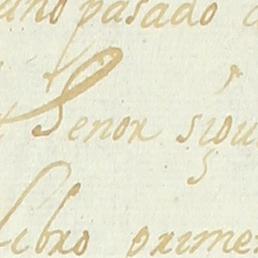 ano pasado
Senor sigu
Libro prime